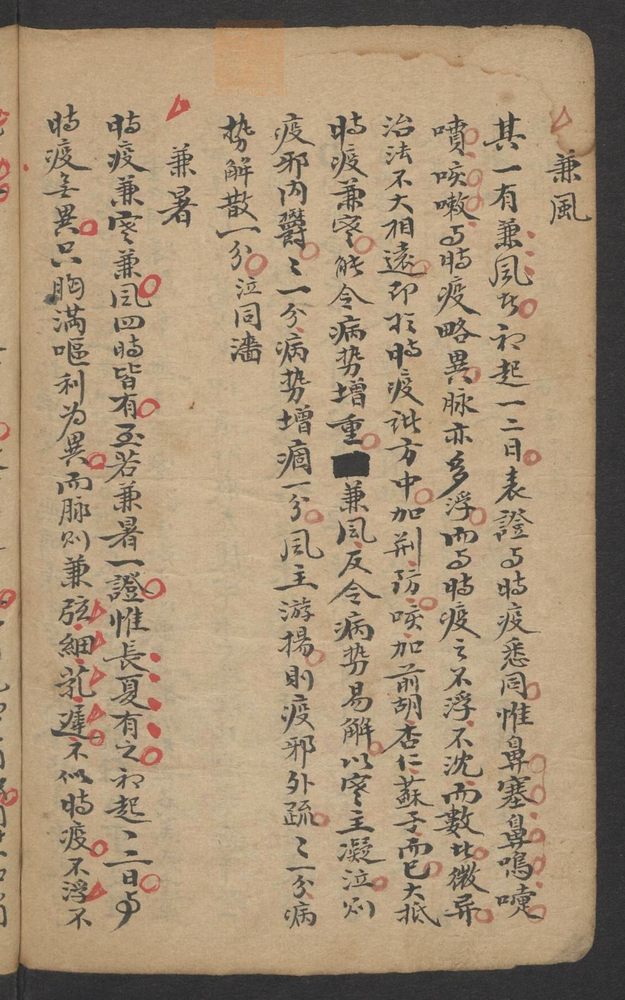 兼風
其一有兼風者初起一二日表證与時疫悉同惟鼻塞鼻鳴嚏
噴咳嗽与時疫略異脉亦多浮而与時疫之不浮不沈而數比微异
治法不大相遠即於時疫諸方中加荊防咳加前胡杏仁蘇子而已大抵
時疫兼寒能令病势增重兼風反令病势易解以寒主凝泣則
疫邪内欝〻一分病势增痼一分風主游揚則疫邪外疏〻一分病
势解散一分泣同濇
兼暑
時疫兼寒兼風四時皆有至若兼暑一證惟長夏有之初起一二日与
時疫無異只胸满嘔利为異而脉則兼弦細芤遲不似時疫不浮不